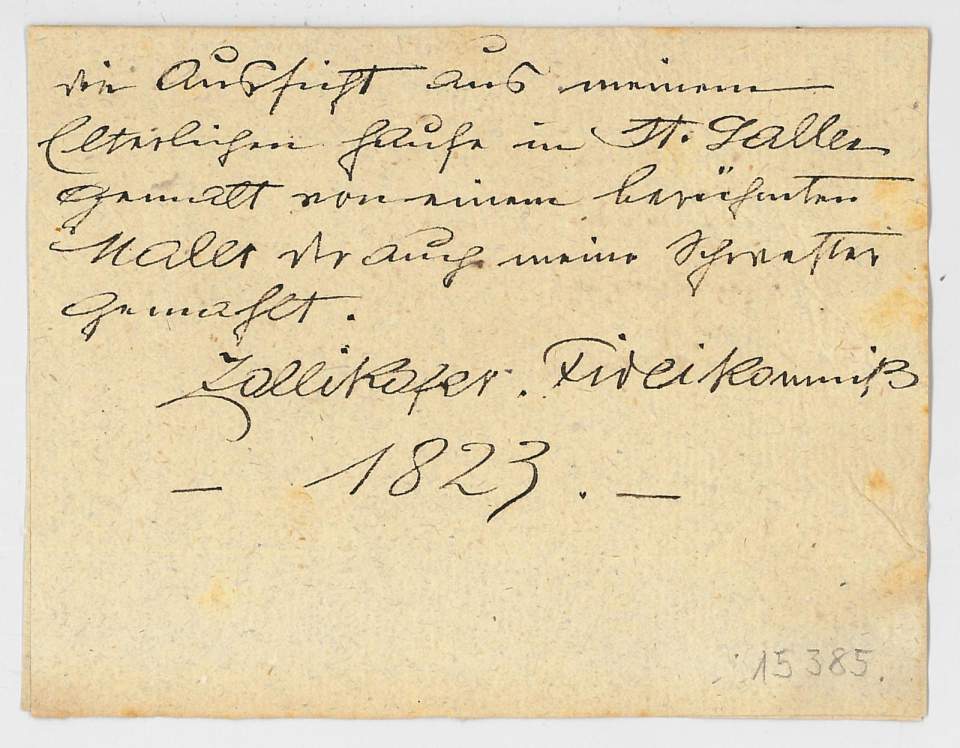 die Aussicht aus meinem
Elterlichen Hause in St. Gallen
gemalt von einem berühmten
Maler der auch meine Schwester
gemahlt.
Zollikofer. Fideikommiß
— 1823. —
15385.